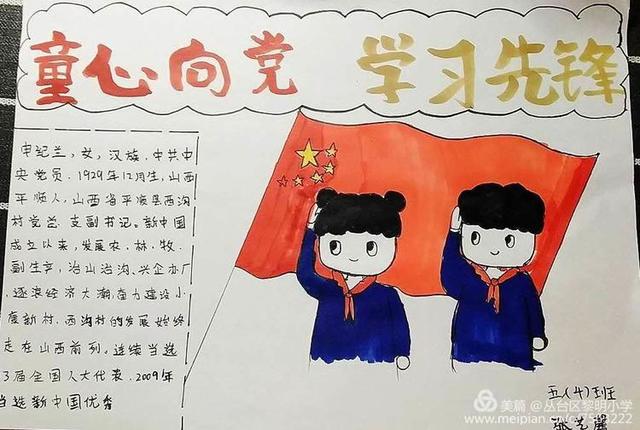 童心向党 学习先锋
申纪兰，女，汉族，中共中
央党员，1929年12月生，山西
平顺人，山西省平顺县西沟
村党总支副书记。新中国
成立以来，发展农、林、牧、
副生产，治山治沟、兴企办厂
逐浪经济大潮奋力建设小
康新村，西沟村的发展始终
走在山西前列。连续当选
13届全国人大代表，2009年
当选新中国优秀
五(4)班
美篇 @丛台区黎明小学